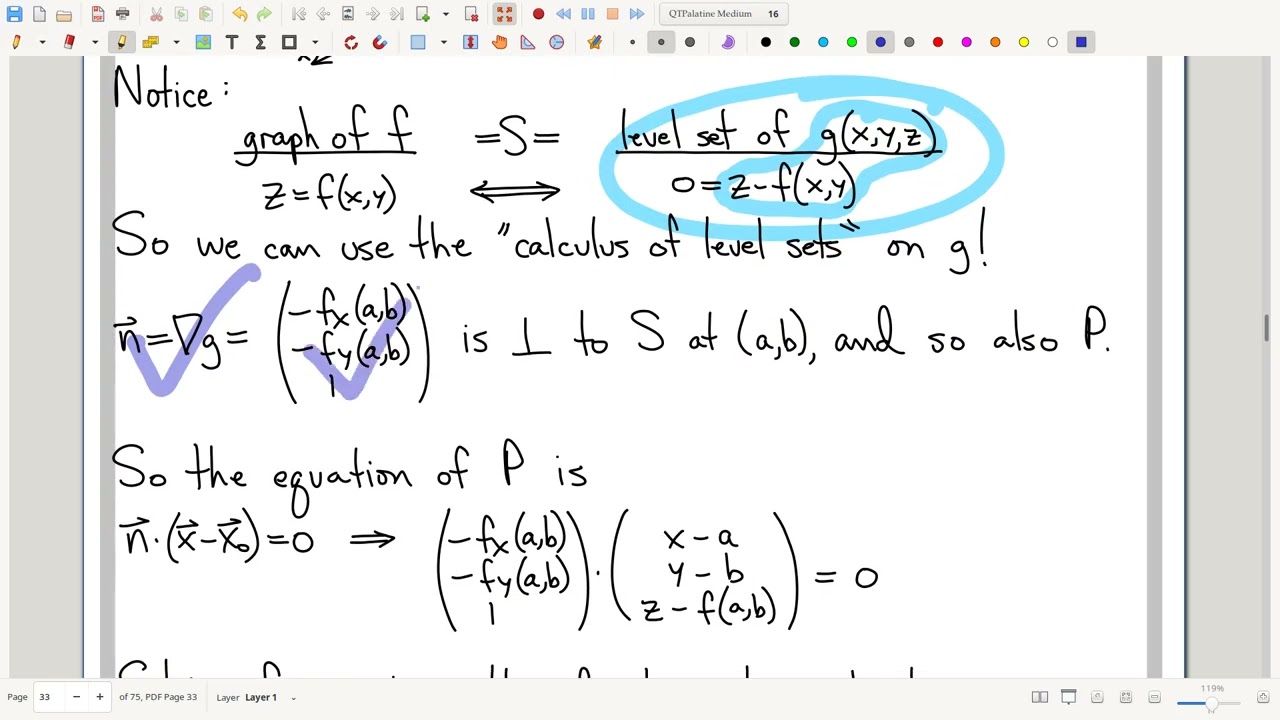 QTPalatine Medium 16
Notice:
graph of f =S= level set of g(x,y,z)
z=f(x,y) ⟺ 0=z-f(x,y)
So we can use the "calculus of level sets" on g!
n⃗=∇g= (-fx(a,b) -fy(a,b) 1) is ⊥ to S at (a,b), and so also P.
So the equation of P is
n⃗·(x⃗-x⃗₀)=0 ⟹ (-fx(a,b) -fy(a,b) 1)·(x-a y-b z-f(a,b)) = 0
Page 33 of 75, PDF Page 33 Layer Layer 1 119%